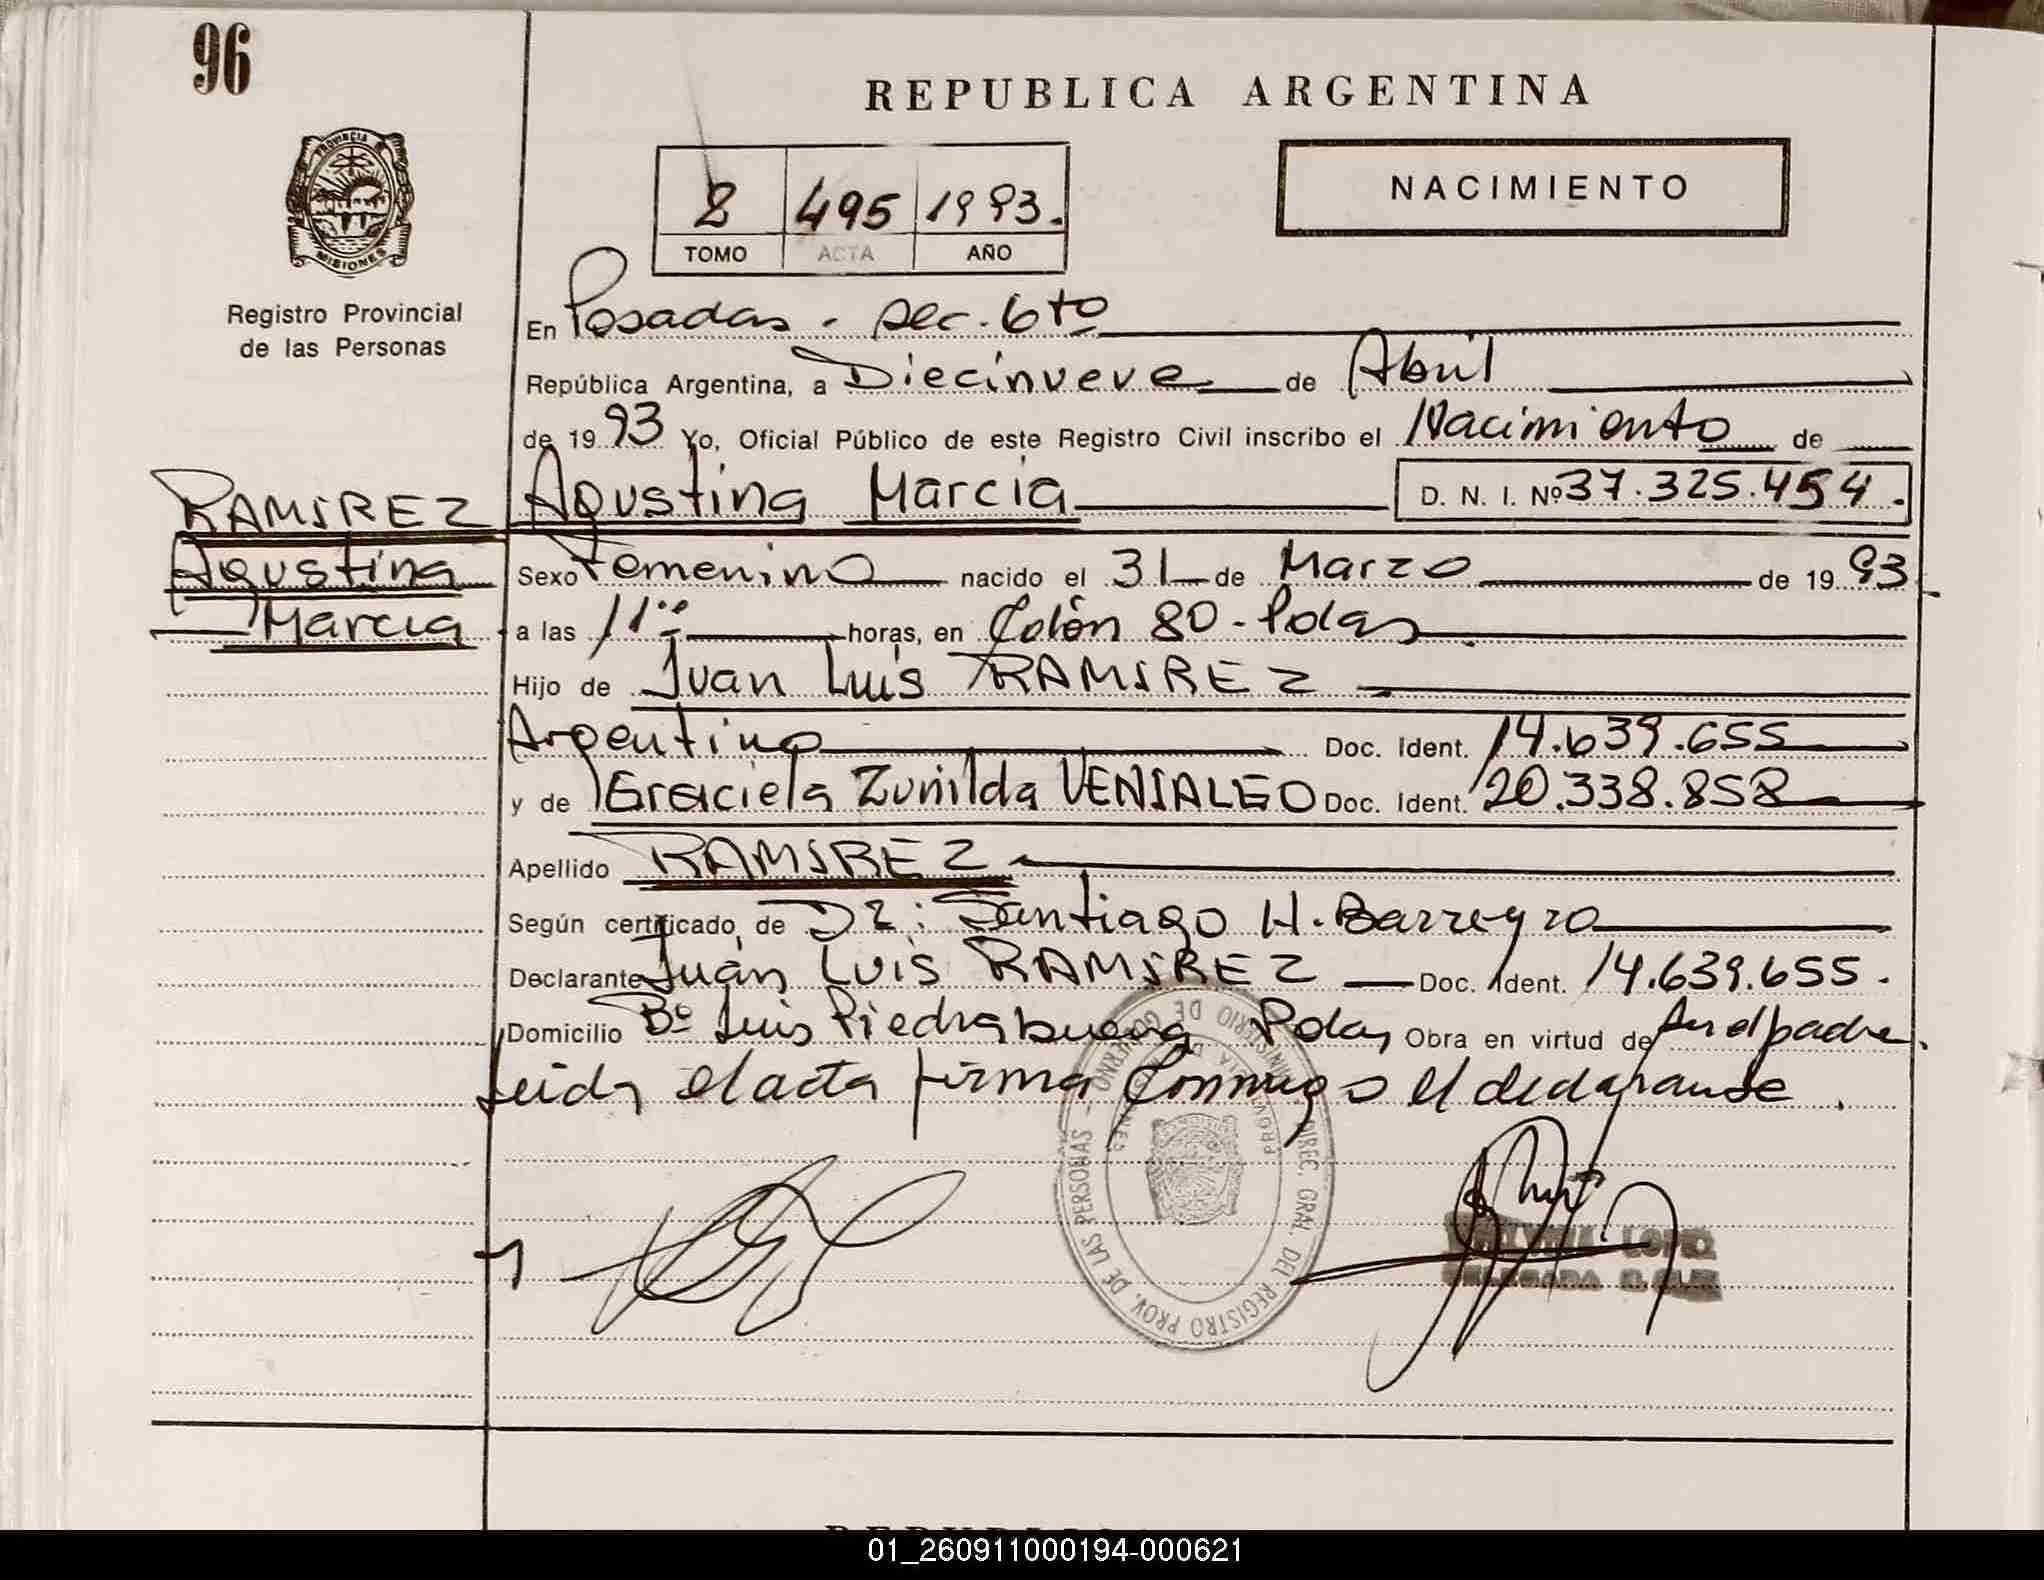 96
REPUBLICA ARGENTINA
PROVINCIA
MISIONES
Registro Provincial
de las Personas
2 495 1993.
TOMO ACTA AÑO
NACIMIENTO
En Posadas - sec. 6to
República Argentina, a Diecinueve de Abril
de 1993 Yo, Oficial Público de este Registro Civil inscribo el Nacimiento de
RAMIREZ
Agustina
Marcia
Agustina Marcia D. N. I. Nº 37.325.454.
Sexo Femenino nacido el 31 de Marzo de 1993
a las 11 horas, en Colón 80 - Pdas
Hijo de Juan Luis RAMIREZ
Argentino Doc. Ident. 14.639.655
y de Graciela Zunilda VENIALGO Doc. Ident. 20.338.858
Apellido RAMIREZ
Según certificado de Dr: Santiago H. Barreyro
Declarante Juan Luis RAMIREZ Doc. Ident. 14.639.655.
Domicilio Bº Luis Piedrabuena Pdas Obra en virtud de ser el padre.
Leida el acta firma conmigo el declarante.
MINISTERIO DE GOBIERNO - DIREC. GRAL. DEL REGISTRO PROV. DE LAS PERSONAS
PROVINCIA DE MISIONES
LOPEZ
01_260911000194-000621